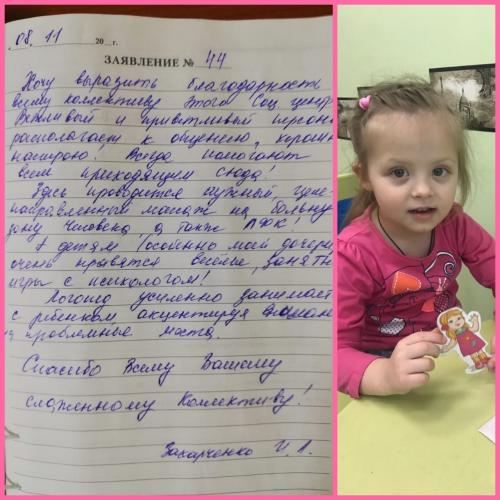 08. 11 20 г.
ЗАЯВЛЕНИЕ № 44
Хочу выразить благодарность
всему коллективу этого Соц. центр
Вежливый и приветливый персона
располагает к общению, хороше
настрою! Всегда помогают
всем приходящим сюда!
Здесь проводится нужный, целе-
направленный массаж на больну
зону человека, а также ЛФК!
А детям (особенно моей дочери
очень нравятся веселые, занятн
игры с психологом!
Логопед усиленно занимает
с ребенком акцентируя вниман
на проблемные места.
Спасибо Всему Вашему
слаженному Коллективу!
Захарченко И. А.